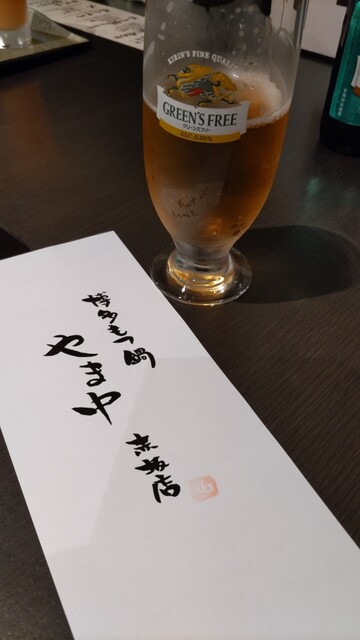 KIRIN'S FINE QUALITY
GREEN'S FREE
グリーンズフリー
ALC.0.00%
博多もつ鍋
やま中
赤坂店